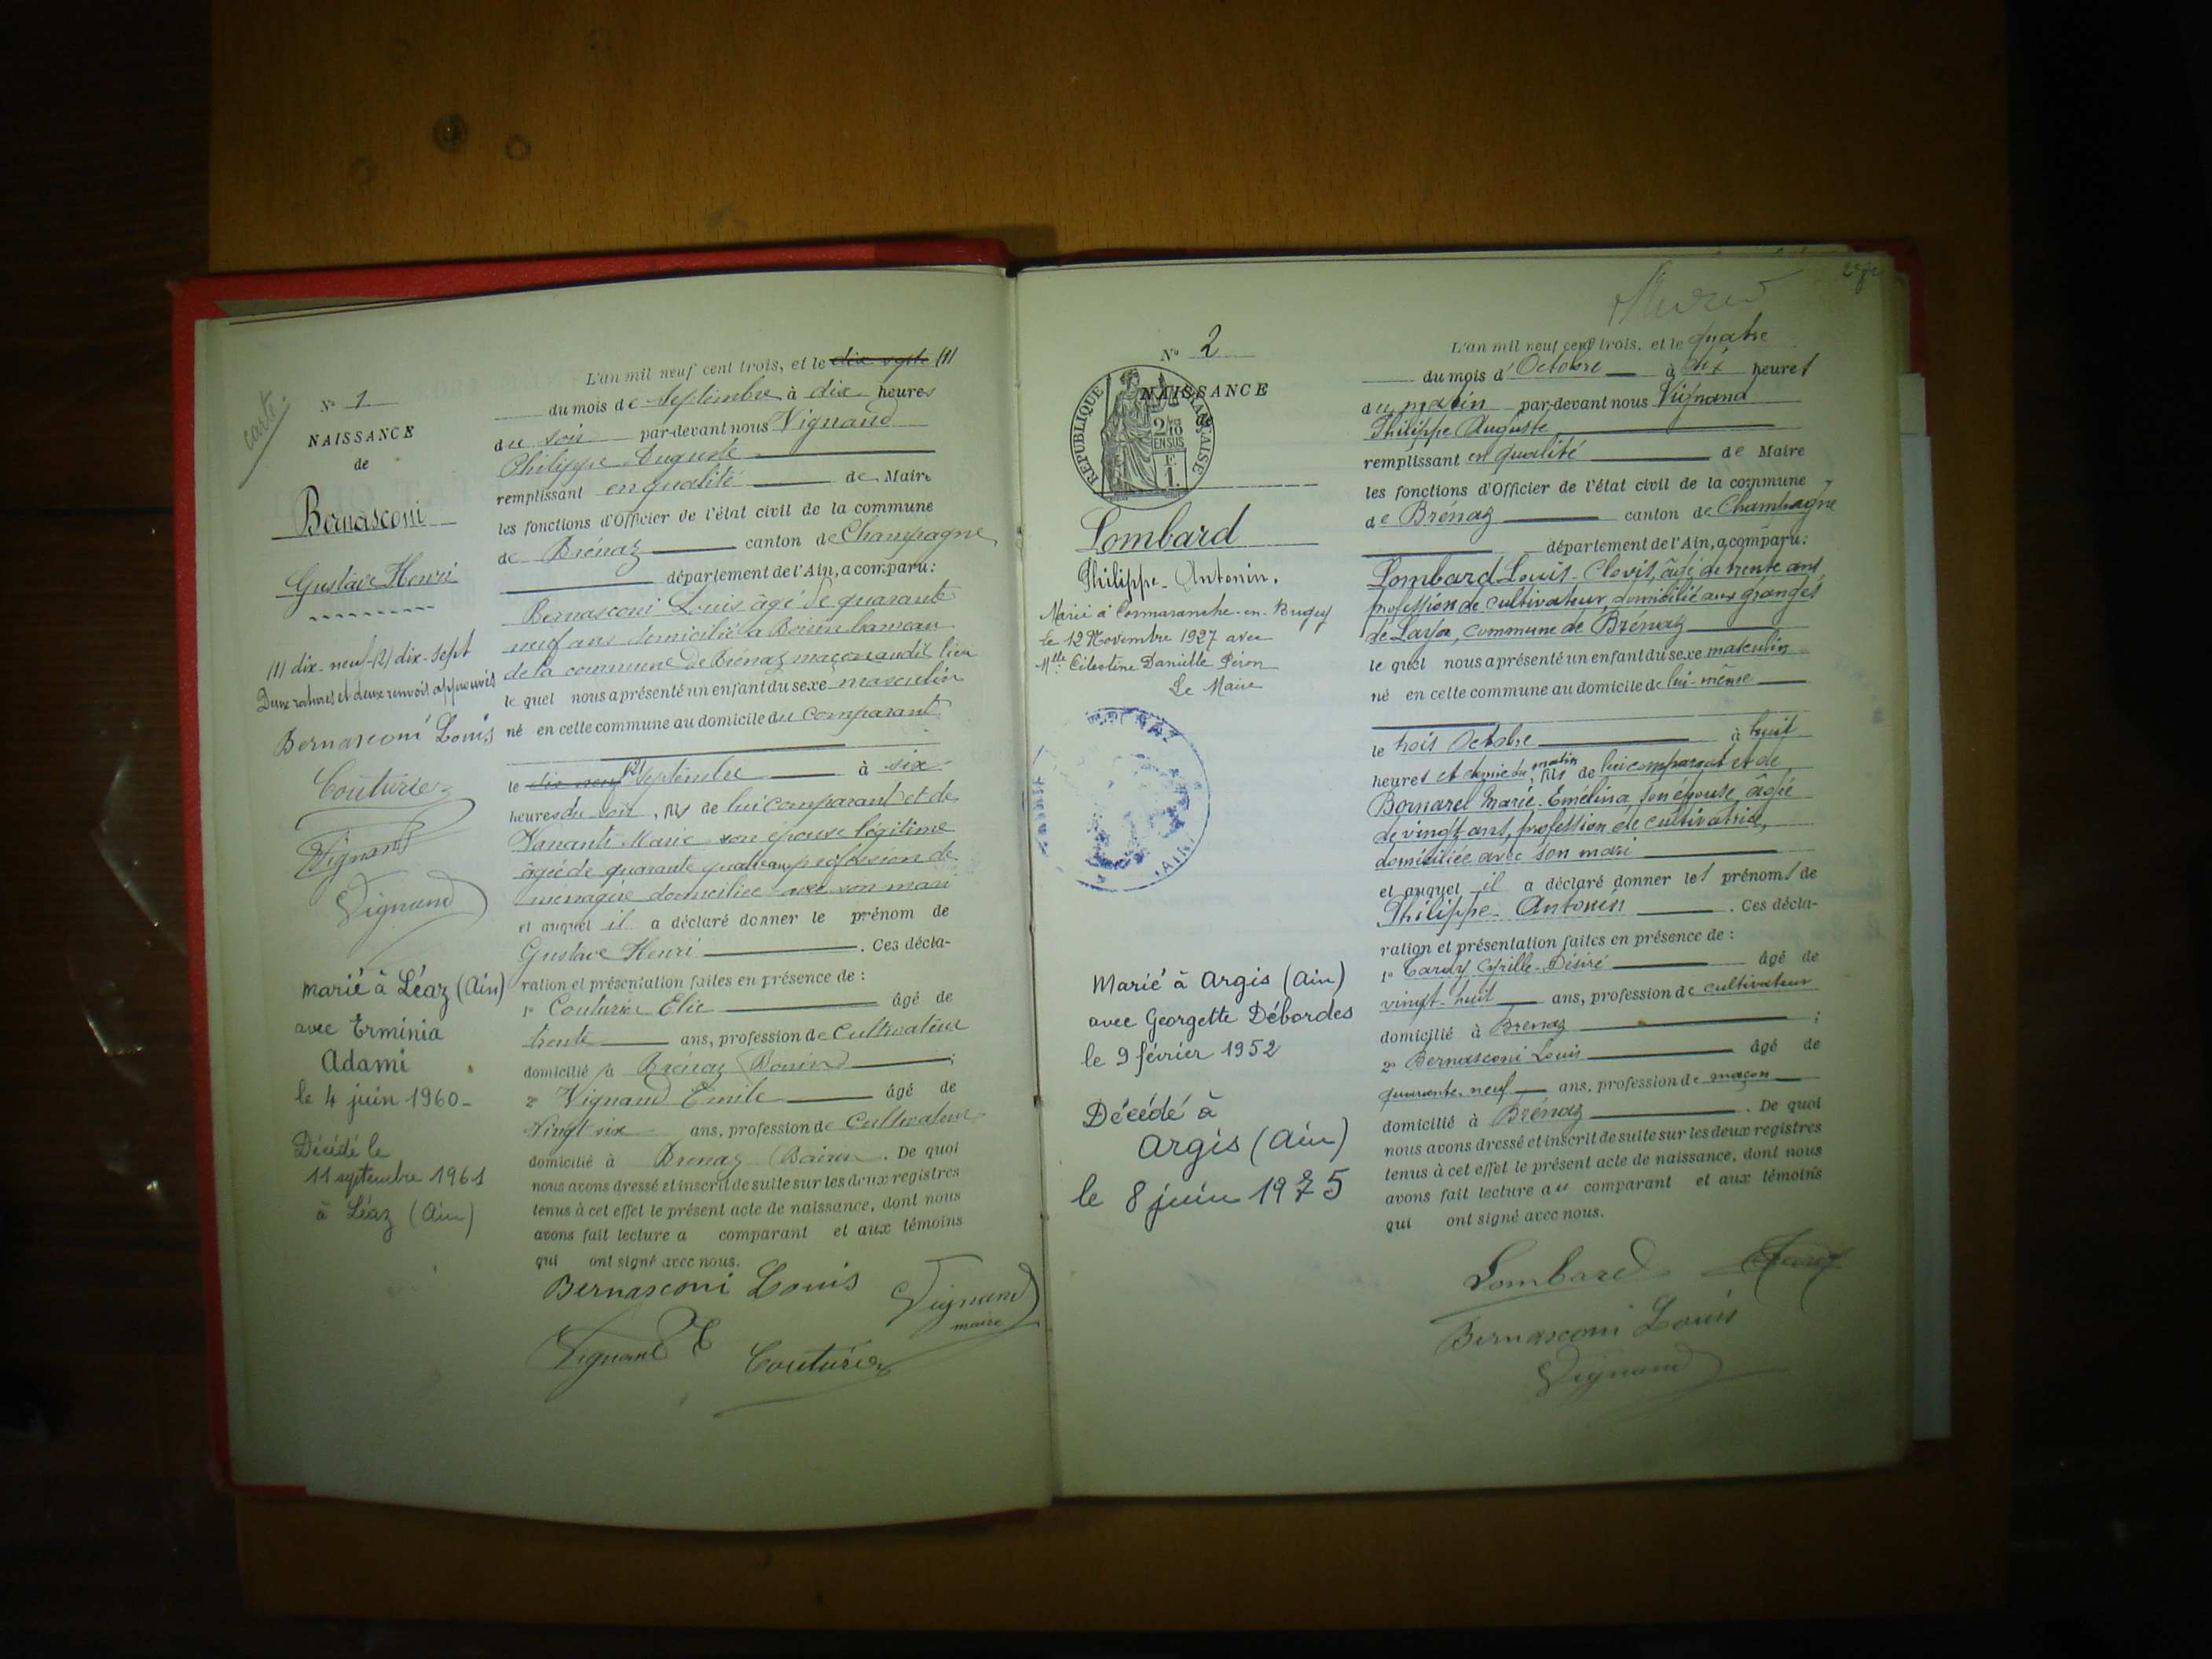 carte.
N° 1
NAISSANCE
de
Bernasconi
Gustave Henri
(1) dix-neuf (2) dix-sept
Deux ratures et deux renvois approuvés
Bernasconi Louis
Couturier
Vignand
Vignand
marié à Léaz (Ain)
avec Erminia
Adami
le 4 juin 1960
Décédé le
11 septembre 1961
à Léaz (Ain)
L'an mil neuf cent trois, et le dix sept (1)
du mois de Septembre à dix heures
du soir par-devant nous Vignand
Philippe Auguste
remplissant en qualité de Maire
les fonctions d'Officier de l'état civil de la commune
de Brénaz canton de Champagne
département de l'Ain, a comparu:
Bernasconi Louis âgé de quarante
neuf ans domicilié à hameau
de la commune de Brénaz maçon audit lieu
le quel nous a présenté un enfant du sexe masculin
né en cette commune au domicile du comparant
le dix neuf (2) septembre à six
heures du soir, fils de lui comparant et de
Marie son épouse légitime
âgée de quarante quatre ans profession de
ménagère domiciliée avec son mari
et auquel il a déclaré donner le prénom de
Gustave Henri. Ces décla-
ration et présentation faites en présence de :
1° Couturier Elie âgé de
trente ans, profession de cultivateur
domicilié à Brénaz ;
2° Vignand Emile âgé de
vingt six ans, profession de cultivateur
domicilié à Brenaz . De quoi
nous avons dressé et inscrit de suite sur les deux registres
tenus à cet effet le présent acte de naissance, dont nous
avons fait lecture a comparant et aux témoins
qui ont signé avec nous.
Bernasconi Louis
Vignand
maire
Vignand E
Couturier
N° 2
NAISSANCE
REPUBLIQUE FRANÇAISE
2/10
EN SUS
F.
1.
Lombard
Philippe-Antonin.
Marié à Cormaranche-en-Bugey
le 12 Novembre 1927 avec
Mlle Célestine Danielle Péron
Le Maire
Marié à Argis (Ain)
avec Georgette Débordes
le 9 février 1952
Décédé à
Argis (Ain)
le 8 juin 1975
L'an mil neuf cent trois, et le quatre
du mois d'Octobre à dix heures
du matin par-devant nous Vignand
Philippe Auguste
remplissant en qualité de Maire
les fonctions d'Officier de l'état civil de la commune
de Brénaz canton de Champagne
département de l'Ain, a comparu:
Lombard Louis-Clovis, âgé de trente ans,
profession de cultivateur, domicilié aux granges
de , commune de Brénaz
le quel nous a présenté un enfant du sexe masculin
né en cette commune au domicile de lui-même
le trois Octobre à huit
heures et demie du matin, fils de lui comparant et de
Marie-Emélina son épouse âgée
de vingt ans, profession de cultivatrice,
domiciliée avec son mari
et auquel il a déclaré donner les prénoms de
Philippe-Antonin. Ces décla-
ration et présentation faites en présence de :
1° Tardy Cyrille-Désiré âgé de
vingt-huit ans, profession de cultivateur
domicilié à Brenaz ;
2° Bernasconi Louis âgé de
quarante-neuf ans, profession de maçon
domicilié à Brénaz . De quoi
nous avons dressé et inscrit de suite sur les deux registres
tenus à cet effet le présent acte de naissance, dont nous
avons fait lecture au comparant et aux témoins
qui ont signé avec nous.
Lombard
Tardy
Bernasconi Louis
Vignand